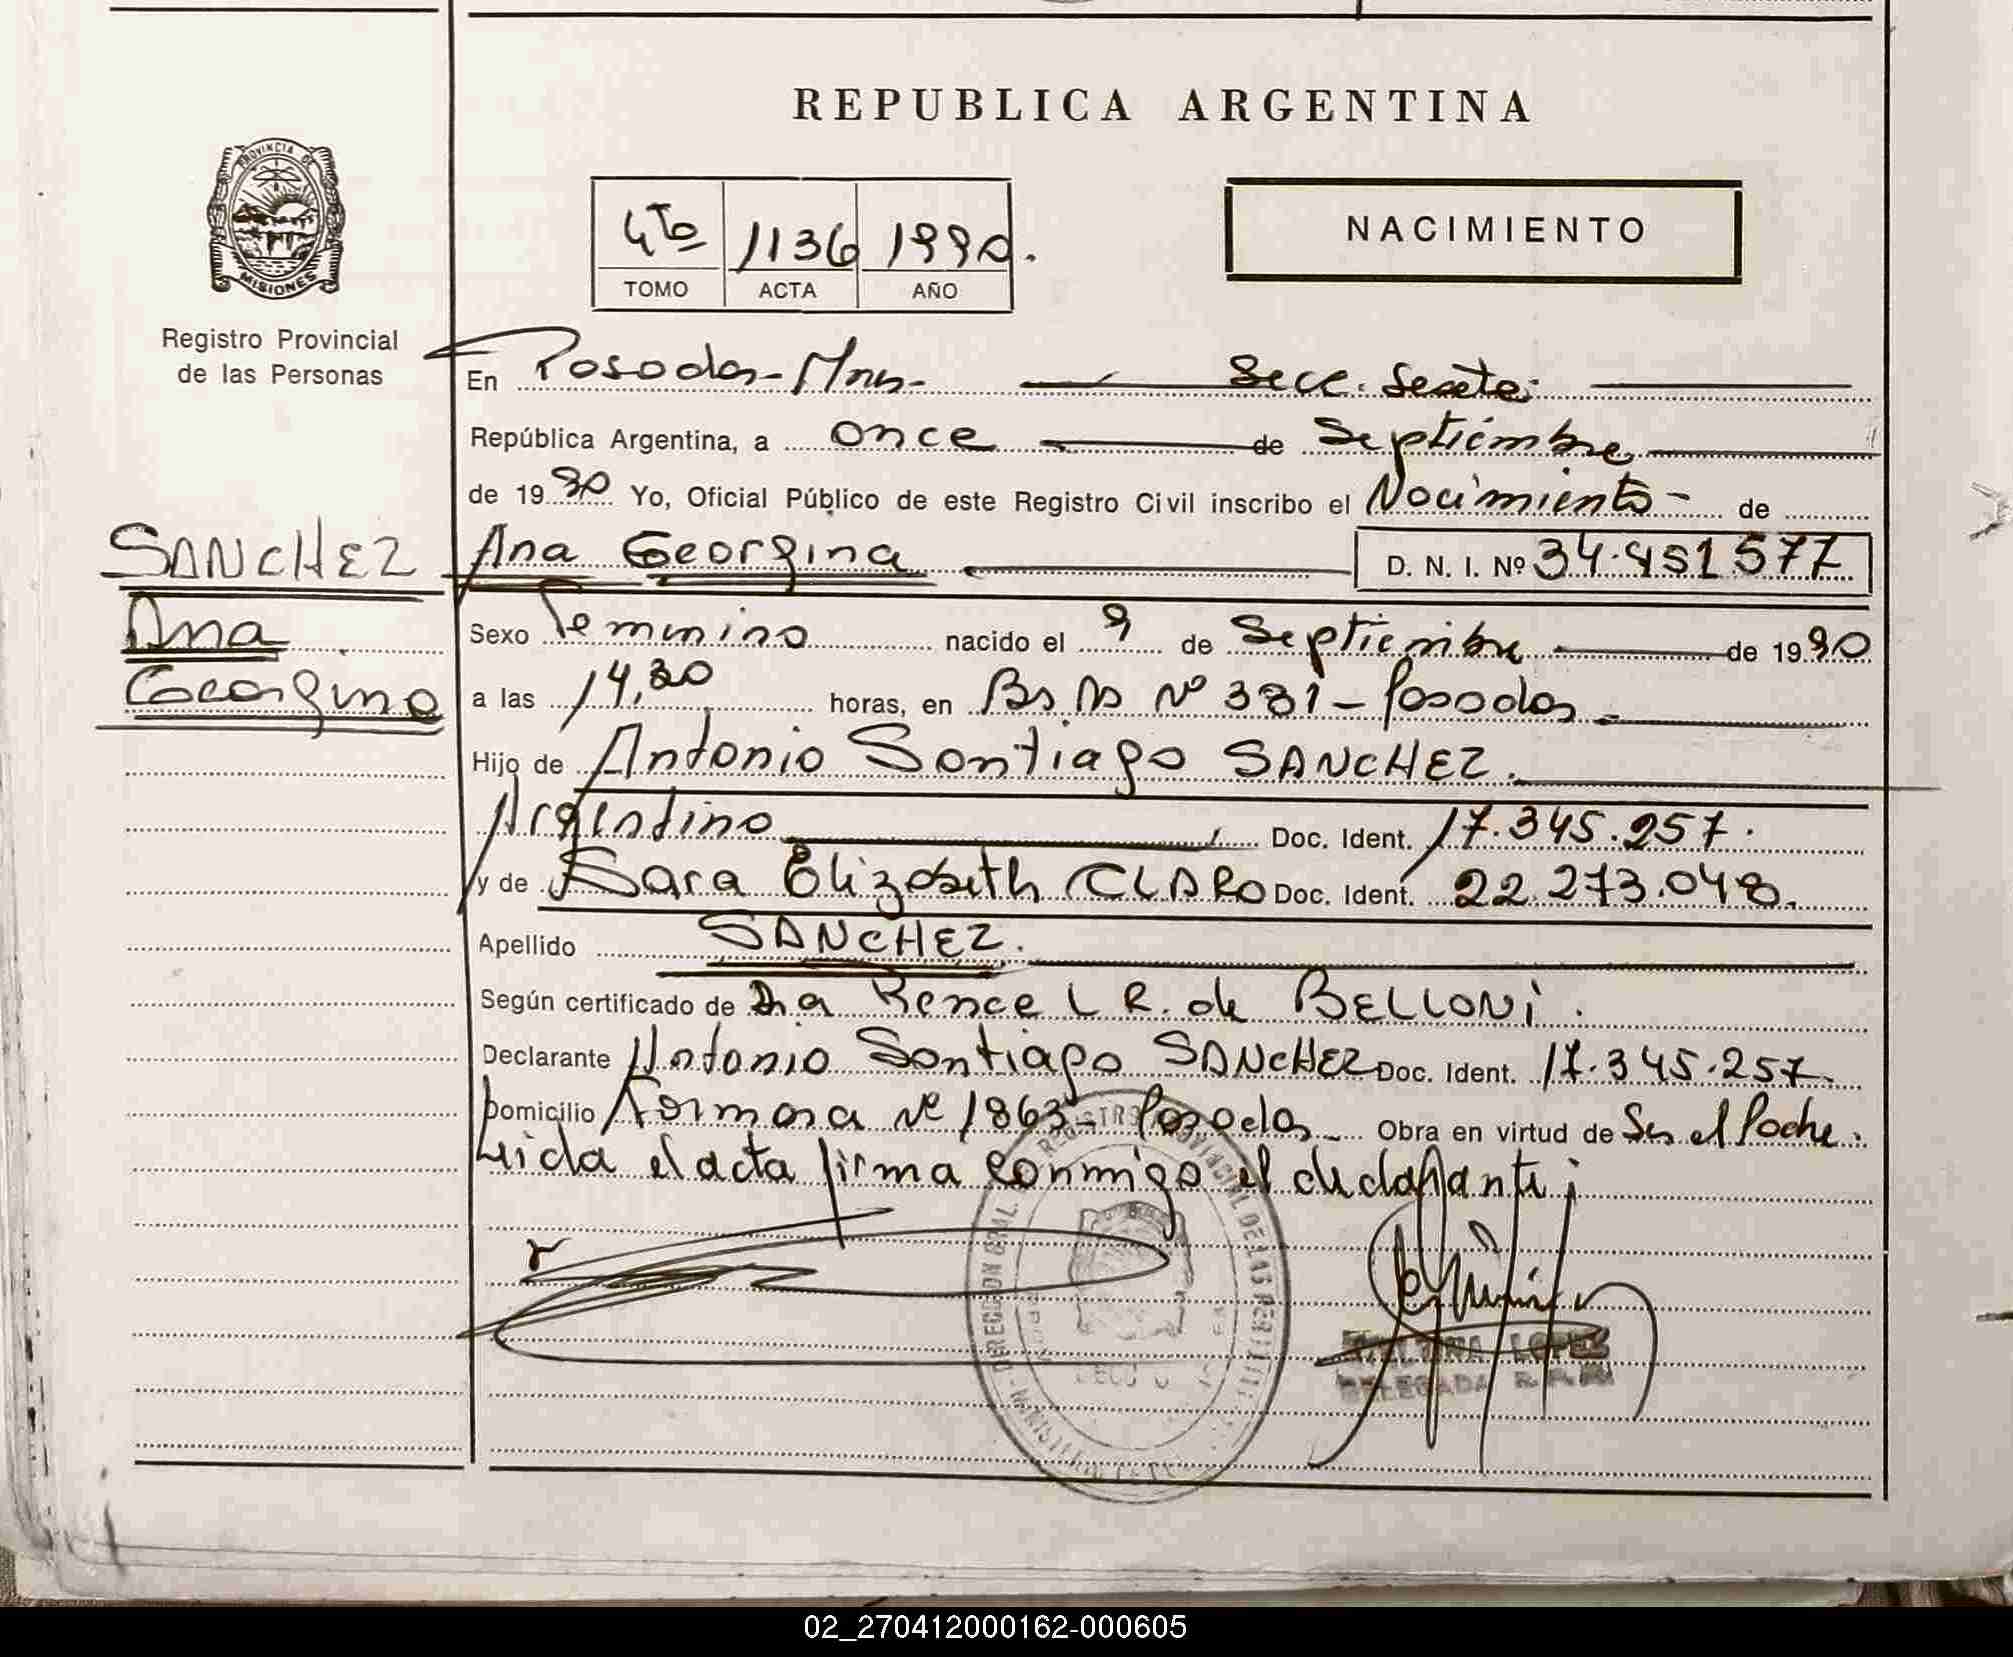 REPUBLICA ARGENTINA
PROVINCIA DE
MISIONES
Registro Provincial
de las Personas
4to 1136 1990.
TOMO ACTA AÑO
NACIMIENTO
En Posadas - Mnes - Secc. Sexta;
República Argentina, a once de Septiembre
de 1990 Yo, Oficial Público de este Registro Civil inscribo el Nacimiento - de
SANCHEZ
Ana
Georgina
Ana Georgina D. N. I. Nº 34.451.577
Sexo Femenino nacido el 9 de Septiembre de 1990
a las 14,30 horas, en Bs As Nº 331 - Posadas -
Hijo de Antonio Santiago SANCHEZ.
Argentino Doc. Ident. 17.345.257.
y de Sara Elizabeth CLARO Doc. Ident. 22.273.048.
Apellido SANCHEZ.
Según certificado de Dra Renee L R. de BELLONi.
Declarante Antonio Santiago SANCHEZ Doc. Ident. 17.345.257.
Domicilio Formosa Nº 1863 - Posadas - Obra en virtud de Ser el Padre.
Leida el acta firma conmigo el declarante;
REGISTRO PROVINCIAL DE LAS PERSONAS
DIRECCION GRAL.
LOPEZ
DELEGADA R.P.P.
02_270412000162-000605